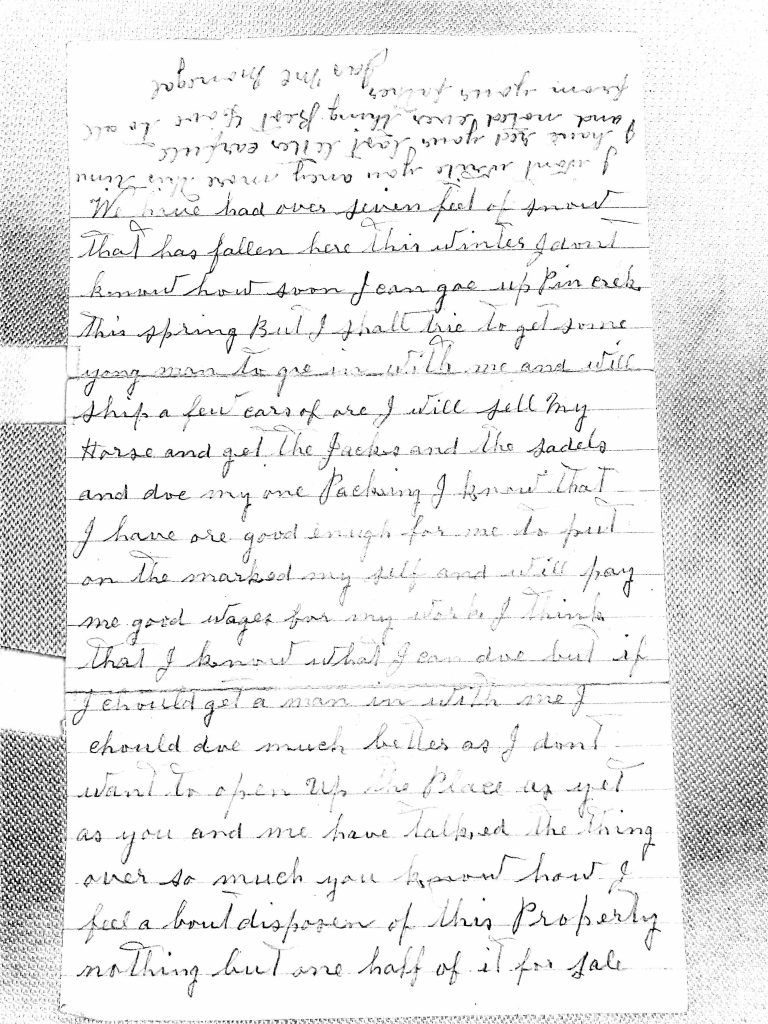 We have had over seven feet of snow
that has fallen here this winter I dont
know how soon I can goe up Pin creek
this spring But I shall trie to get some
yong man to goe in with me and will
ship a few cars of ore I will sell my
Horse and get the Jacks and the sadels
and doe my one Packing I know that
I have ore good enugh for me to put
on the marked my self and will pay
me good wages for my work I think
that I know what I can doe but if
I chould get a man in with me I
chould doe much better as I dont
want to open up the Place as yet
as you and me have talked the thing
over so much you know how I
feel a bout disposen of this Property
nothing but one half of it for sale
I wont write you aney more this time
I have red your last letter carfull
and noted ever thing Best love to all
from your father
Jas Mc